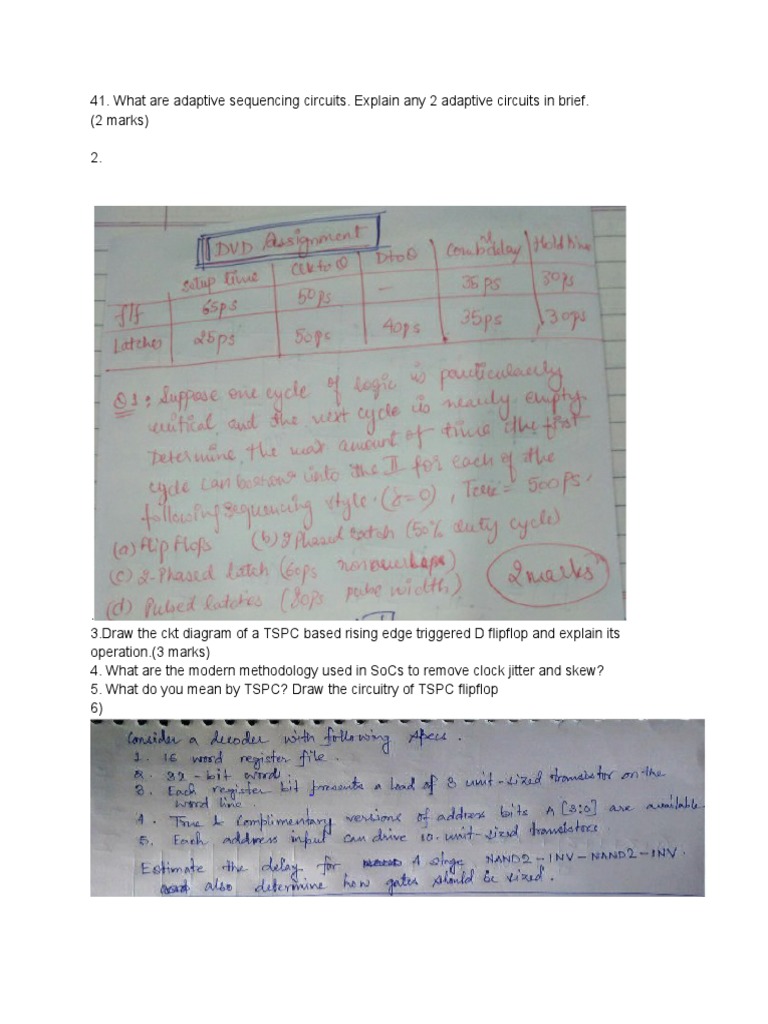 41. What are adaptive sequencing circuits. Explain any 2 adaptive circuits in brief.
(2 marks)
2.
DVD Assignment
setup time Clk to Q D to Q Comb delay Hold time
f/f 65ps 50ps — 35ps 30ps
Latches 25ps 50ps 40ps 35ps 30ps
Q1: Suppose one cycle of logic is particularly
critical and the next cycle is nearly empty.
Determine the max amount of time the first
cycle can borrow into the II for each of the
following sequencing style. 500ps.
(a) flip flops (b) 2 Phased latch (50% duty cycle)
(c) 2-Phased latch (60ps nonoverlaps)
(d) Pulsed latches (80ps pulse width) 2 marks
3.Draw the ckt diagram of a TSPC based rising edge triggered D flipflop and explain its
operation.(3 marks)
4. What are the modern methodology used in SoCs to remove clock jitter and skew?
5. What do you mean by TSPC? Draw the circuitry of TSPC flipflop
6)
Consider a decoder with following specs.
1. 16 word register file.
2. 32-bit word.
3. Each register bit presents a load of 3 unit-sized transistor on the
word line.
4. True & complimentary versions of address bits A[3:0] are available.
5. Each address input can drive 10 unit-sized transistors.
Estimate the delay for 4 stage NAND2-INV-NAND2-INV.
also determine how gates should be sized.